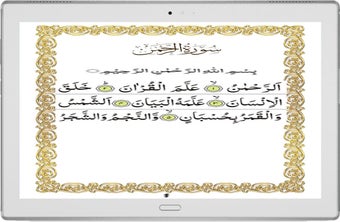 سورة الرحمن
بِسْمِ اللهِ الرَّحْمٰنِ الرَّحِيْمِ
اَلرَّحْمٰنُ ۙ﴿۱﴾ عَلَّمَ الْقُرْاٰنَ ؕ﴿۲﴾ خَلَقَ
الْاِنْسَانَ ۙ﴿۳﴾ عَلَّمَهُ الْبَيَانَ ﴿۴﴾ اَلشَّمْسُ
وَالْقَمَرُ بِحُسْبَانٍ ﴿۵﴾ وَّالنَّجْمُ وَالشَّجَرُ